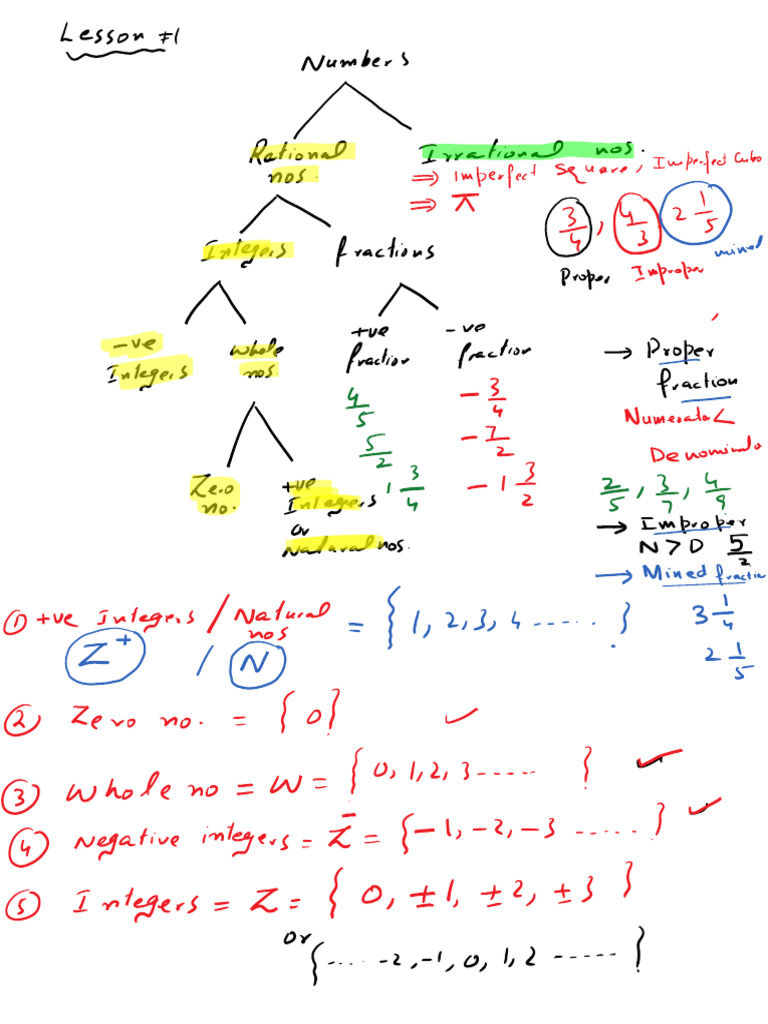 Lesson #1
Numbers
Rational nos.
Irrational nos.
⇒ Imperfect Square, Imperfect Cube
⇒ π
3/4, 4/3 2 1/5
Proper Improper mined
Integers fractions
-ve Integers
whole nos.
+ve fraction
-ve fraction
4/5
5/2
1 3/4
- 3/4
- 7/2
- 1 3/2
Zero no.
+ve Integers
or
Natural nos.
→ Proper fraction
Numerator <
Denominato
2/5, 3/7, 4/9
→ Improper
N > D 5/2
→ Mined fractio
3 1/4
2 1/5
① +ve Integers / Natural nos = { 1, 2, 3, 4 ...... }
Z+ / N
② Zero no. = { 0 } ✓
③ Whole no = W = { 0, 1, 2, 3 ...... } ✓
④ Negative integers = Z- = { -1, -2, -3 ...... } ✓
⑤ Integers = Z = { 0, ±1, ±2, ±3 }
or { ..... -2, -1, 0, 1, 2 ...... }